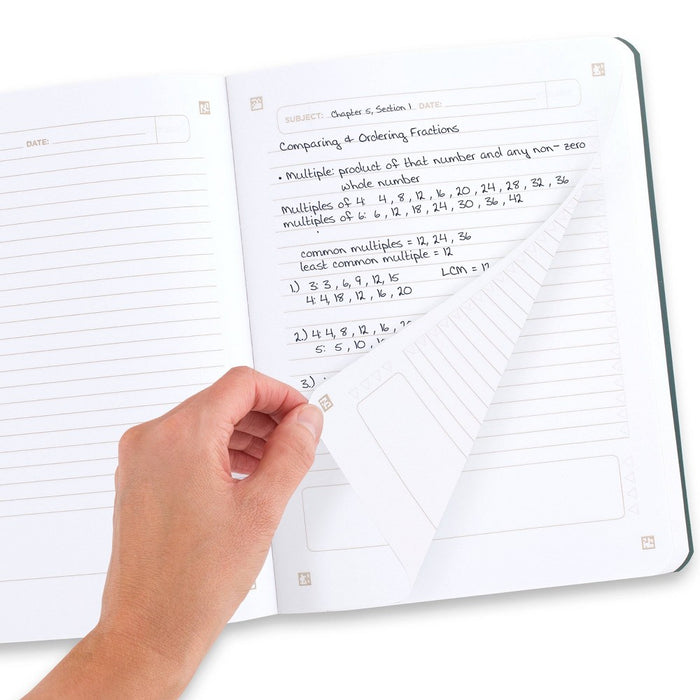 DATE:
SUBJECT: Chapter 5, Section 1 DATE:
Comparing & Ordering Fractions
• Multiple: product of that number and any non-zero
whole number
multiples of 4: 4, 8, 12, 16, 20, 24, 28, 32, 36
multiples of 6: 6, 12, 18, 24, 30, 36, 42
common multiples = 12, 24, 36
least common multiple = 12
1.) 3: 3, 6, 9, 12, 15 LCM = 12
4: 4, 18, 12, 16, 20
2.) 4: 4, 8, 12, 16,
5: 5, 10,
3.)